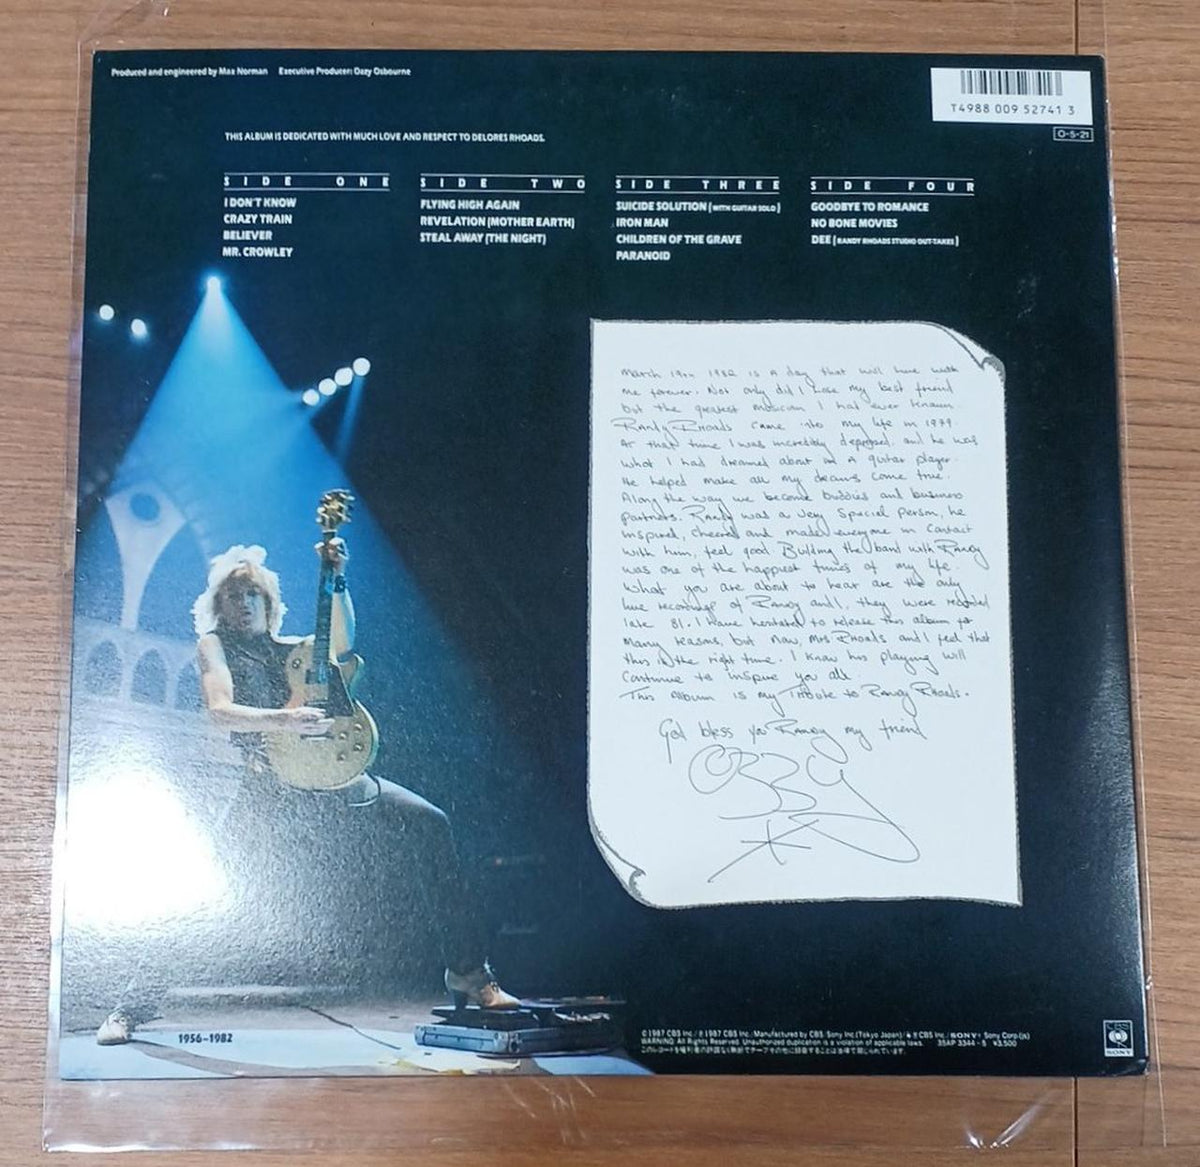 Produced and engineered by Max Norman Executive Producer: Ozzy Osbourne
T4988 009 52741 3
O-5-21
THIS ALBUM IS DEDICATED WITH MUCH LOVE AND RESPECT TO DELORES RHOADS.
SIDE ONE
I DON'T KNOW
CRAZY TRAIN
BELIEVER
MR. CROWLEY
SIDE TWO
FLYING HIGH AGAIN
REVELATION (MOTHER EARTH)
STEAL AWAY (THE NIGHT)
SIDE THREE
SUICIDE SOLUTION (WITH GUITAR SOLO)
IRON MAN
CHILDREN OF THE GRAVE
PARANOID
SIDE FOUR
GOODBYE TO ROMANCE
NO BONE MOVIES
DEE (RANDY RHOADS STUDIO OUT-TAKES)
March 19th 1982 is a day that will live with
me forever. Not only did I lose my best friend
but the greatest musician I had ever known.
Randy Rhoads came into my life in 1979.
At that time I was incredibly depressed, and he was
what I had dreamed about in a guitar player.
He helped make all my dreams come true.
Along the way we became buddies and business
partners. Randy was a very special person, he
inspired, cheered and made everyone in contact
with him, feel good. Building the band with Randy
was one of the happiest times of my life.
What you are about to hear are the only
live recordings of Randy and I, they were recorded
late 81. I have hesitated to release this album for
many reasons, but now, Mrs Rhoads and I feel that
this is the right time. I know his playing will
continue to inspire you all.
This Album is my Tribute to Randy Rhoads.
God bless you Randy my friend
OZZY
1956–1982
©1987 CBS Inc./℗1987 CBS Inc./Manufactured by CBS/Sony Inc.(Tokyo Japan)/ CBS Inc./SONY® Sony Corp.(s)
WARNING: All Rights Reserved. Unauthorized duplication is a violation of applicable laws. 35AP 3344-5 ¥3,500
CBS
SONY